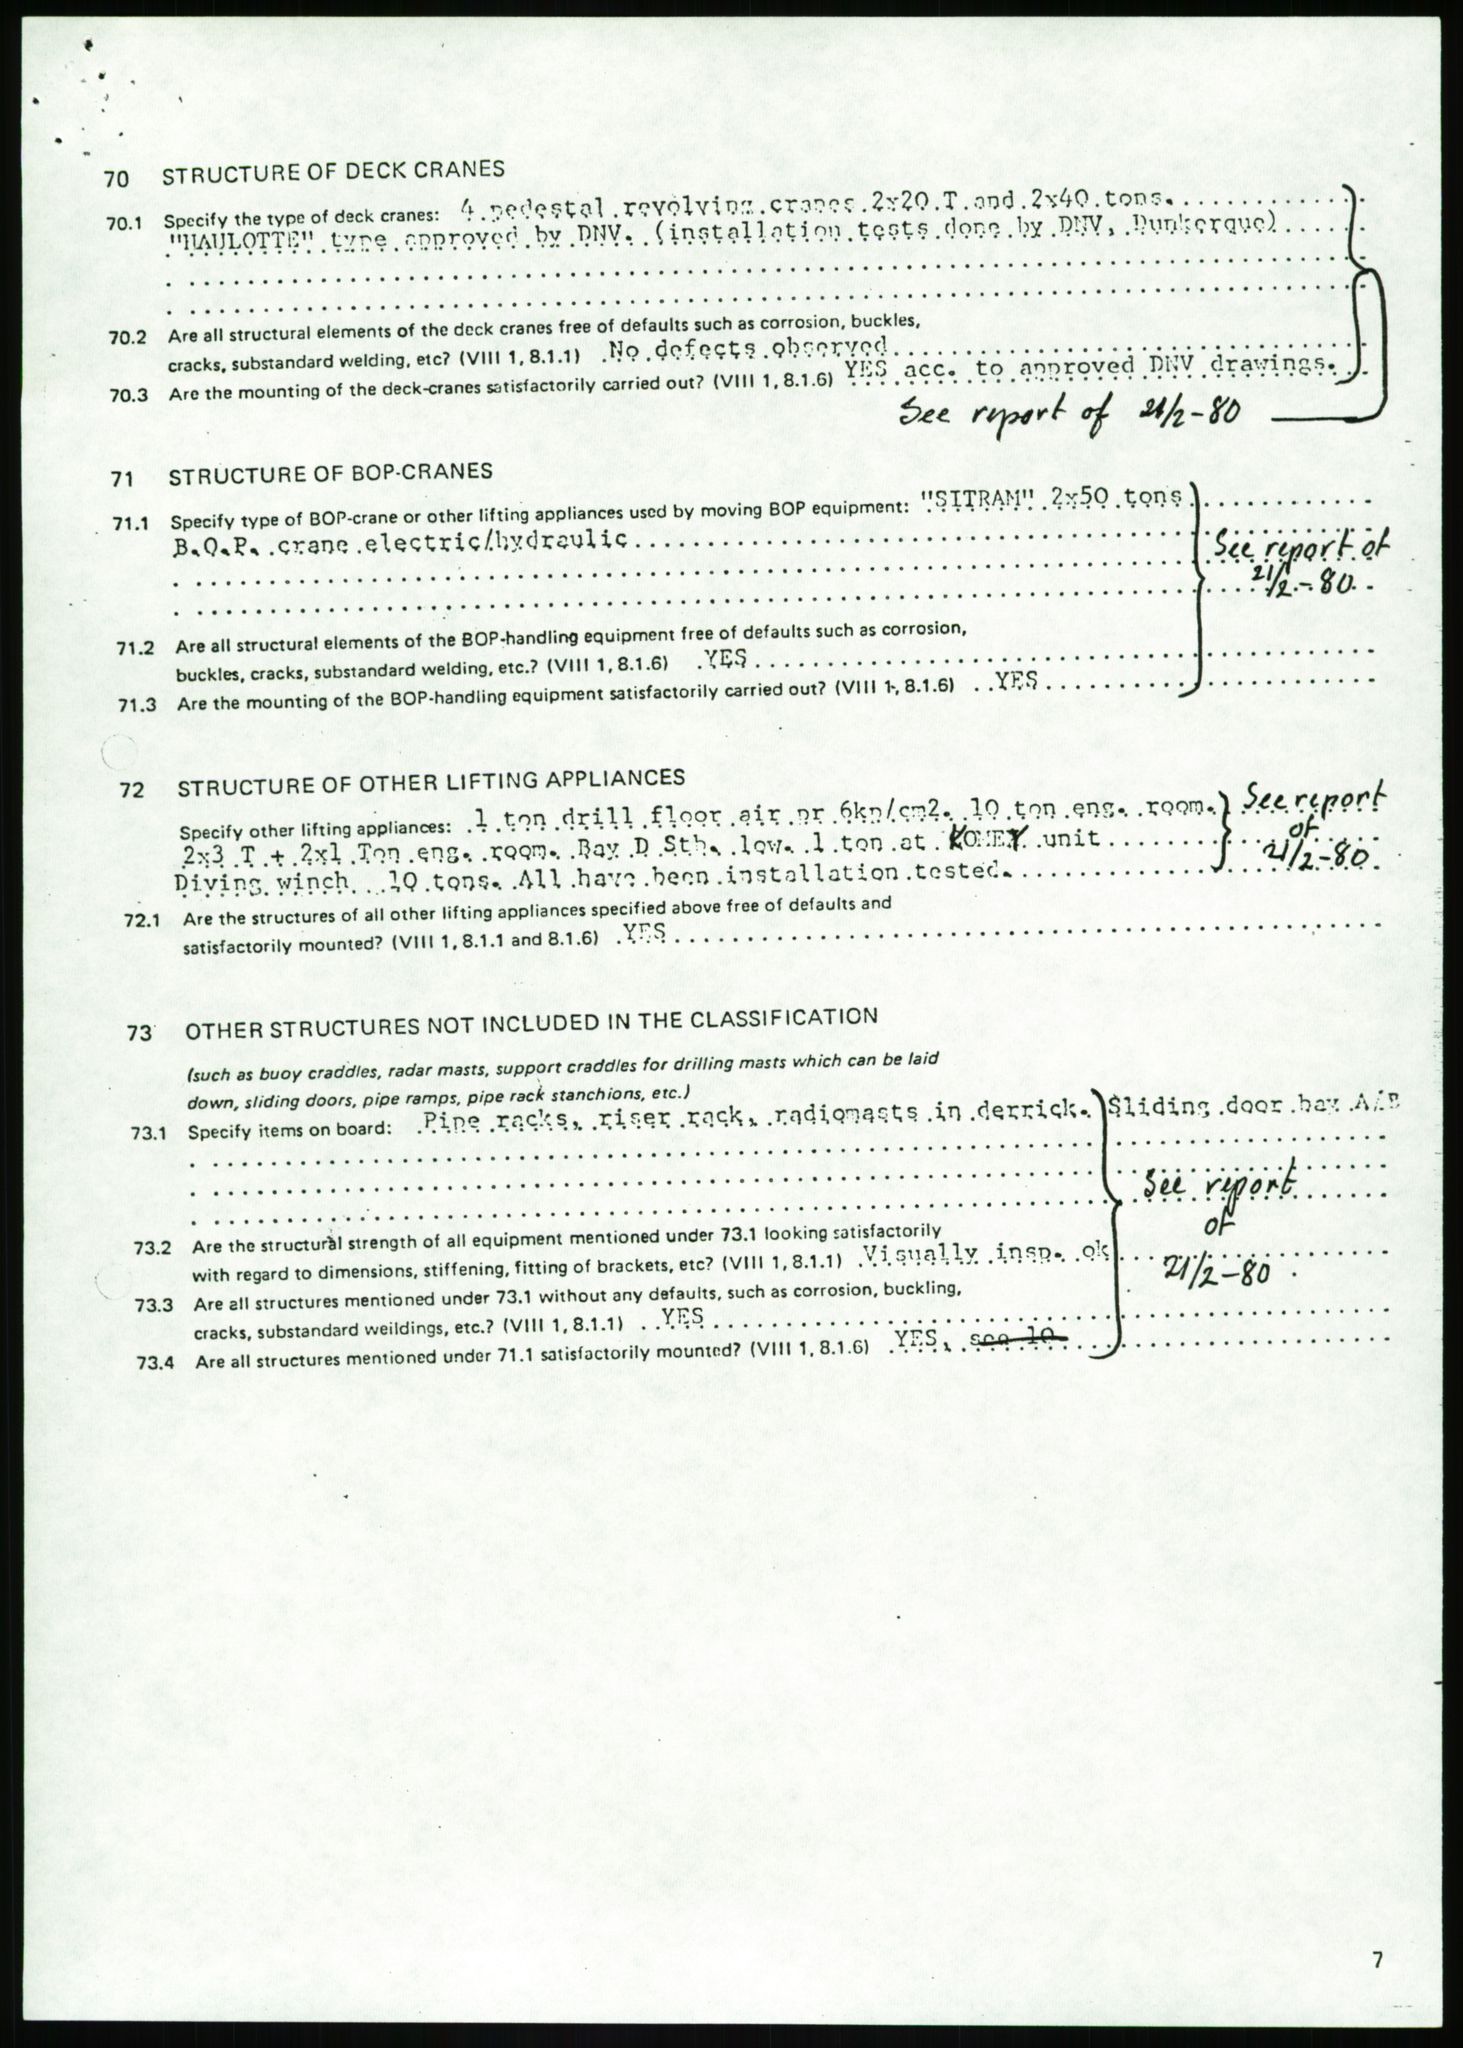 70 STRUCTURE OF DECK CRANES
70.1 Specify the type of deck cranes: 4 pedestal revolving cranes 2x20 T and 2x40 tons.
"HAULOTTE" type approved by DNV. (installation tests done by DNV, Dunkerque)
70.2 Are all structural elements of the deck cranes free of defaults such as corrosion, buckles,
cracks, substandard welding, etc? (VIII 1, 8.1.1) No defects observed
70.3 Are the mounting of the deck-cranes satisfactorily carried out? (VIII 1, 8.1.6) YES acc. to approved DNV drawings.
See report of 21/2-80
71 STRUCTURE OF BOP-CRANES
71.1 Specify type of BOP-crane or other lifting appliances used by moving BOP equipment: "SITRAM" 2x50 tons
B.O.P. crane electric/hydraulic
See report of
21/2-80
71.2 Are all structural elements of the BOP-handling equipment free of defaults such as corrosion,
buckles, cracks, substandard welding, etc.? (VIII 1, 8.1.6) YES
71.3 Are the mounting of the BOP-handling equipment satisfactorily carried out? (VIII 1, 8.1.6) YES
72 STRUCTURE OF OTHER LIFTING APPLIANCES
Specify other lifting appliances: 1 ton drill floor air pr 6kp/cm2. 10 ton eng. room.
2x3 T + 2x1 Ton eng. room. Bay D Stb. low. 1 ton at KOMEY unit
Diving winch 10 tons. All have been installation tested.
See report
of
21/2-80
72.1 Are the structures of all other lifting appliances specified above free of defaults and
satisfactorily mounted? (VIII 1, 8.1.1 and 8.1.6) YES
73 OTHER STRUCTURES NOT INCLUDED IN THE CLASSIFICATION
(such as buoy craddles, radar masts, support craddles for drilling masts which can be laid
down, sliding doors, pipe ramps, pipe rack stanchions, etc.)
73.1 Specify items on board: Pipe racks, riser rack, radiomasts in derrick. Sliding door bay A/B
See report
of
21/2-80
73.2 Are the structural strength of all equipment mentioned under 73.1 looking satisfactorily
with regard to dimensions, stiffening, fitting of brackets, etc? (VIII 1, 8.1.1) Visually insp. ok
73.3 Are all structures mentioned under 73.1 without any defaults, such as corrosion, buckling,
cracks, substandard weildings, etc.? (VIII 1, 8.1.1) YES
73.4 Are all structures mentioned under 71.1 satisfactorily mounted? (VIII 1, 8.1.6) YES, see 10
7